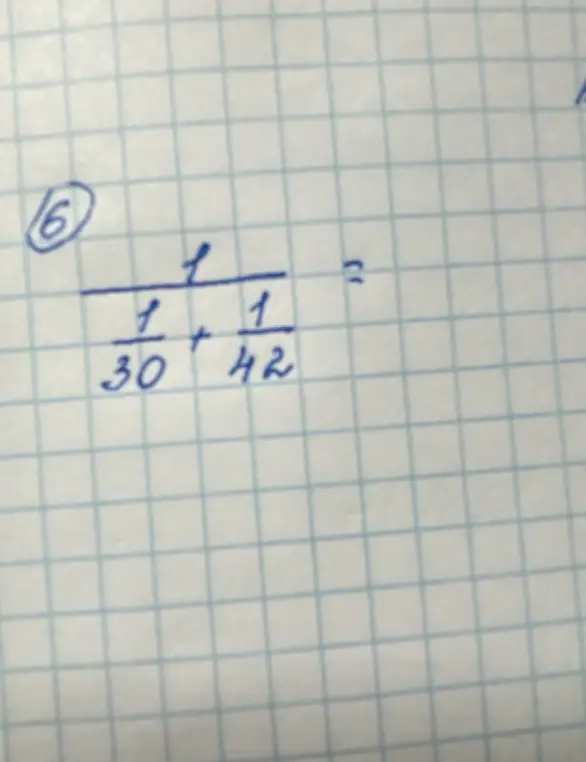 6
1
1/30 + 1/42 =